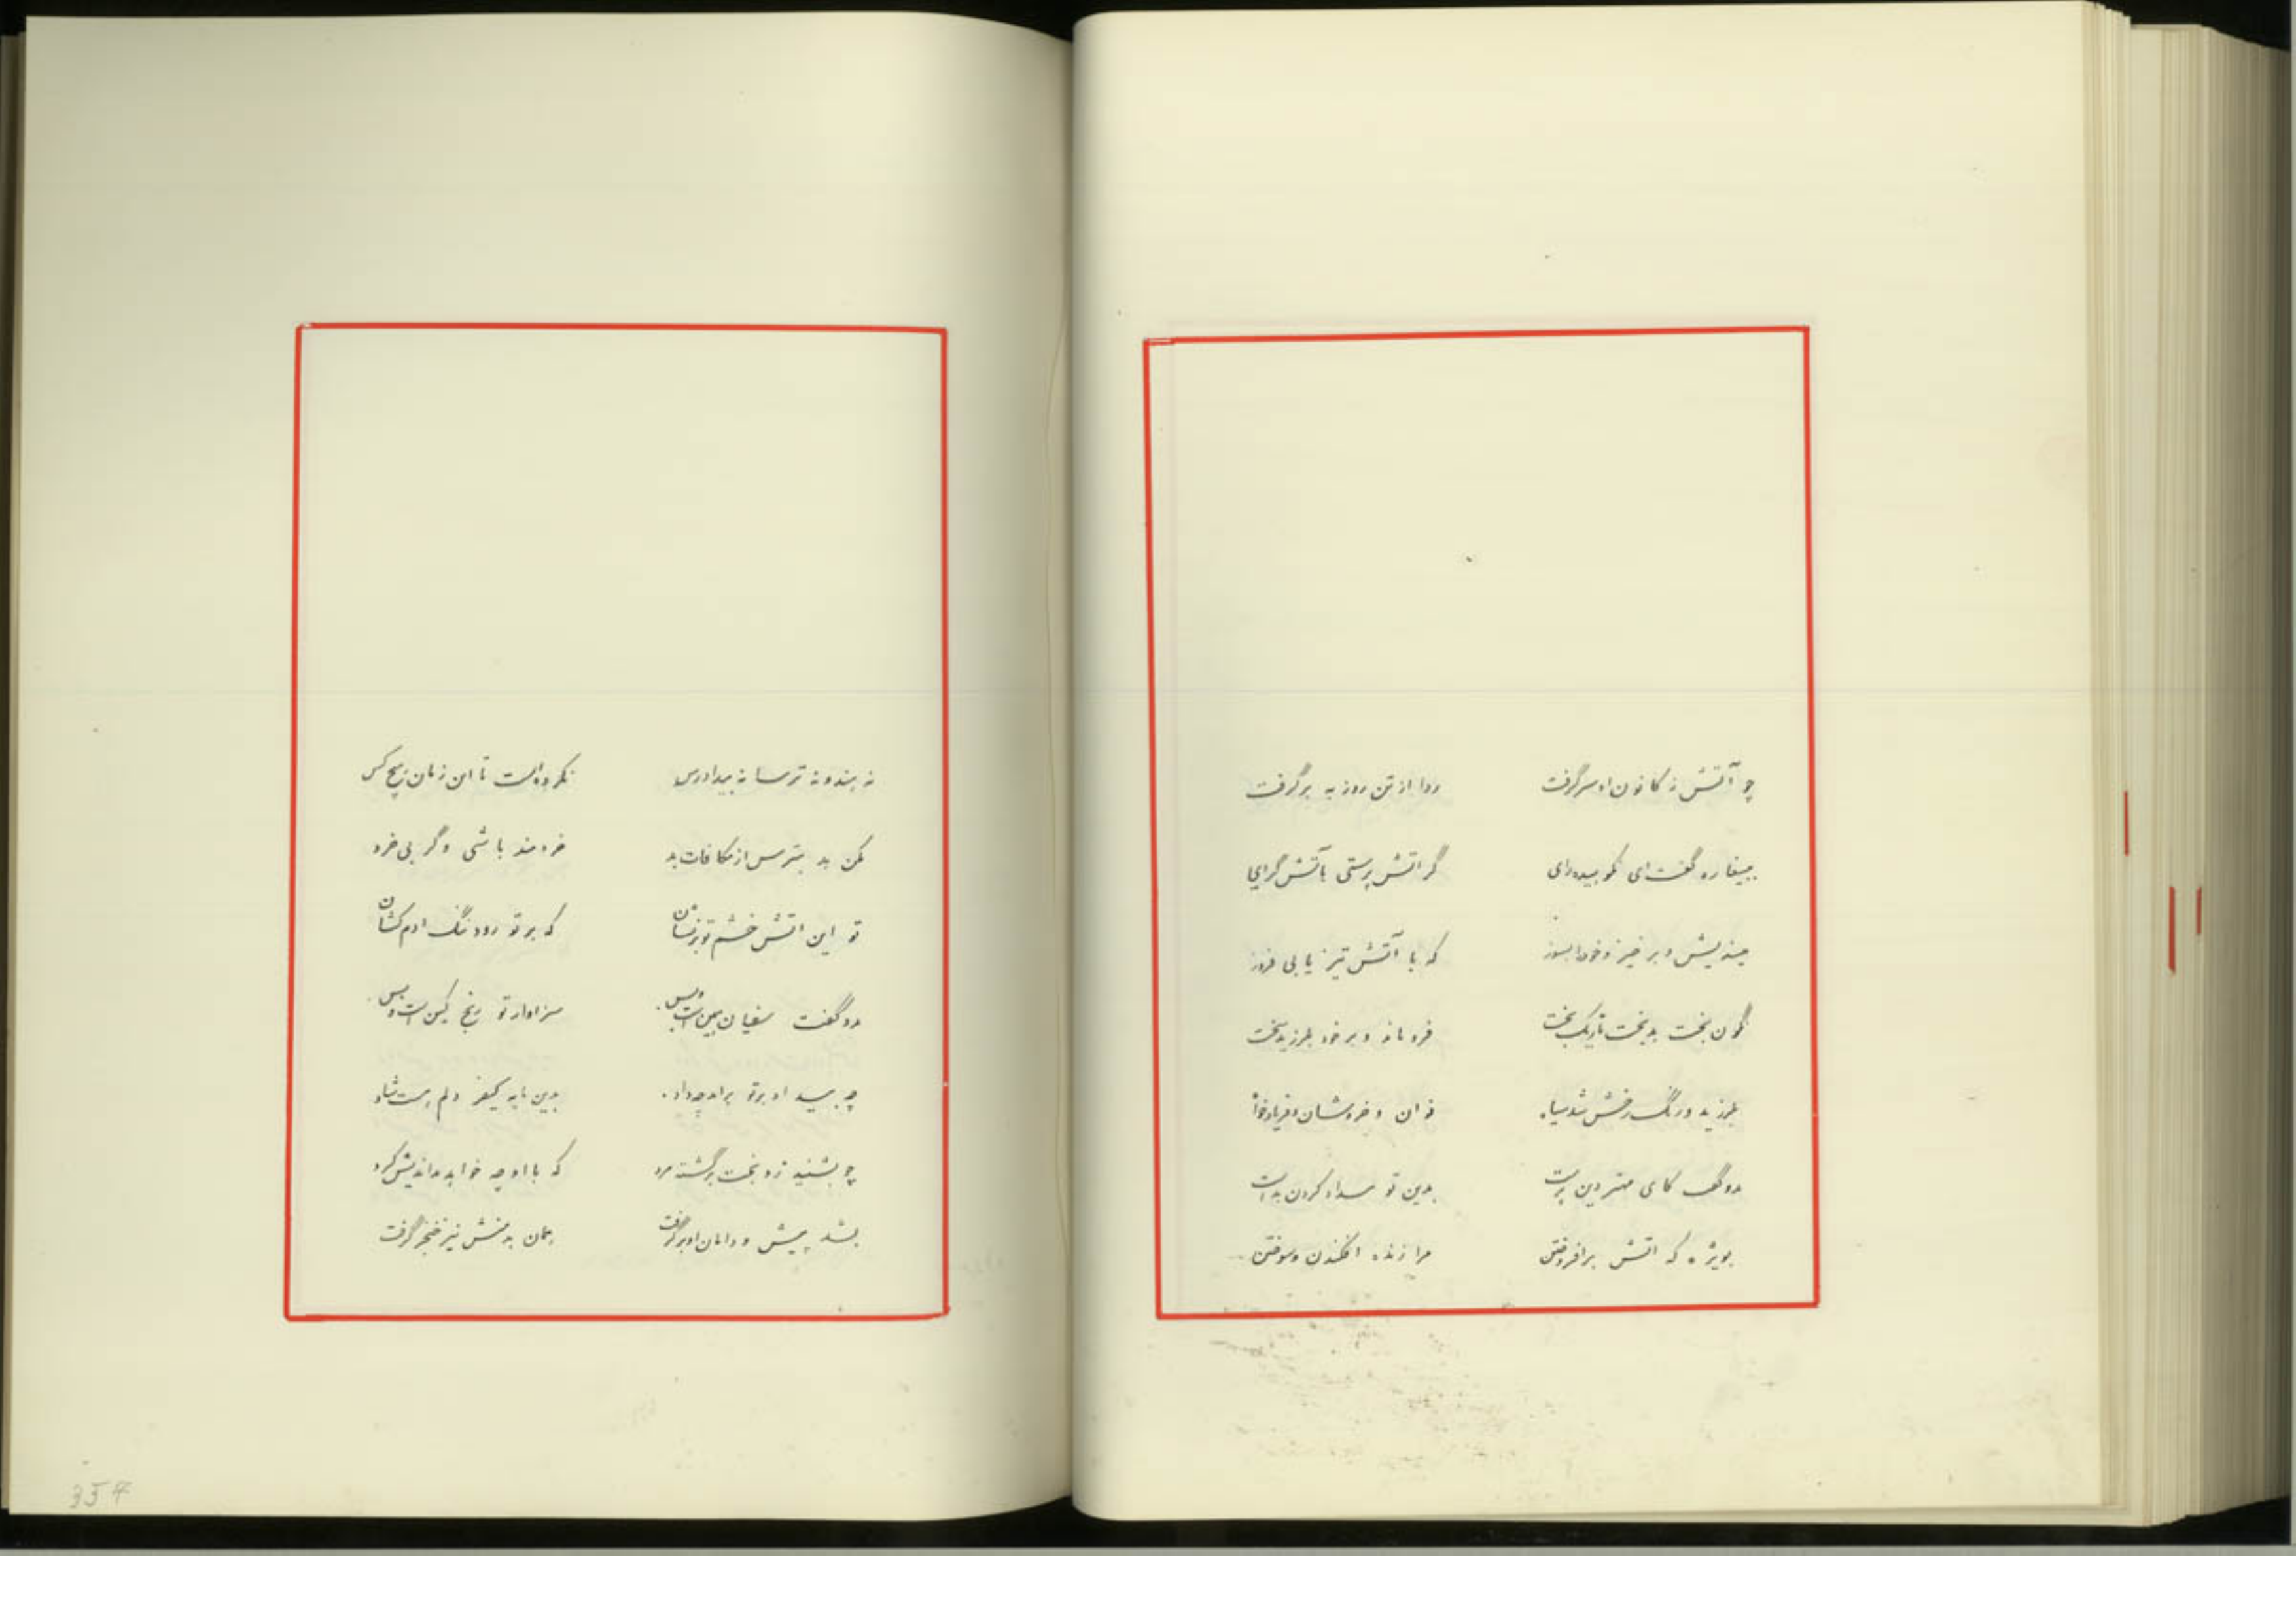 چو آتش ز کانون او سر گرفت ردا از تن روزبه برگرفت
ببیغاره گفت ای نکوهیده رای گر اتش پرستی بآتش گرای
میندیش و برخیز و خود را بسوز که با آتش تیز یابی فروز
نگون بخت بدبخت تاریک بخت فرو ماند و بر خود بلرزید سخت
بلرزید و رنگ رخش شد سیاه نوان و خروشان و فریاد خواه
بدو گفت کای مهتر دین پرست بدین تو بیداد کردن بد است
بویژه که اتش برافروختن مرا زنده افکندن و سوختن
نه هندو نه ترسا نه بیدادرس نکرده است تا این زمان هیچ کس
مکن بد بترس از مکافات بد خردمند باشی و گر بی خرد
تو این اتش خشم تو بر نشان که بر تو رود ننگ ادم کشان
بدو گفت سفیان همین است و بس سزاوار تو رنج کین است و بس
چو بیداد بر تو براید چه داد بدین مایه کیفر دلم هست شاد
چو بشنید زو بخت برگشته مرد که با او چه خواهد بداندیش کرد
بشد پیش و دامان او برگرفت همان بدمنش نیز خنجر گرفت
357